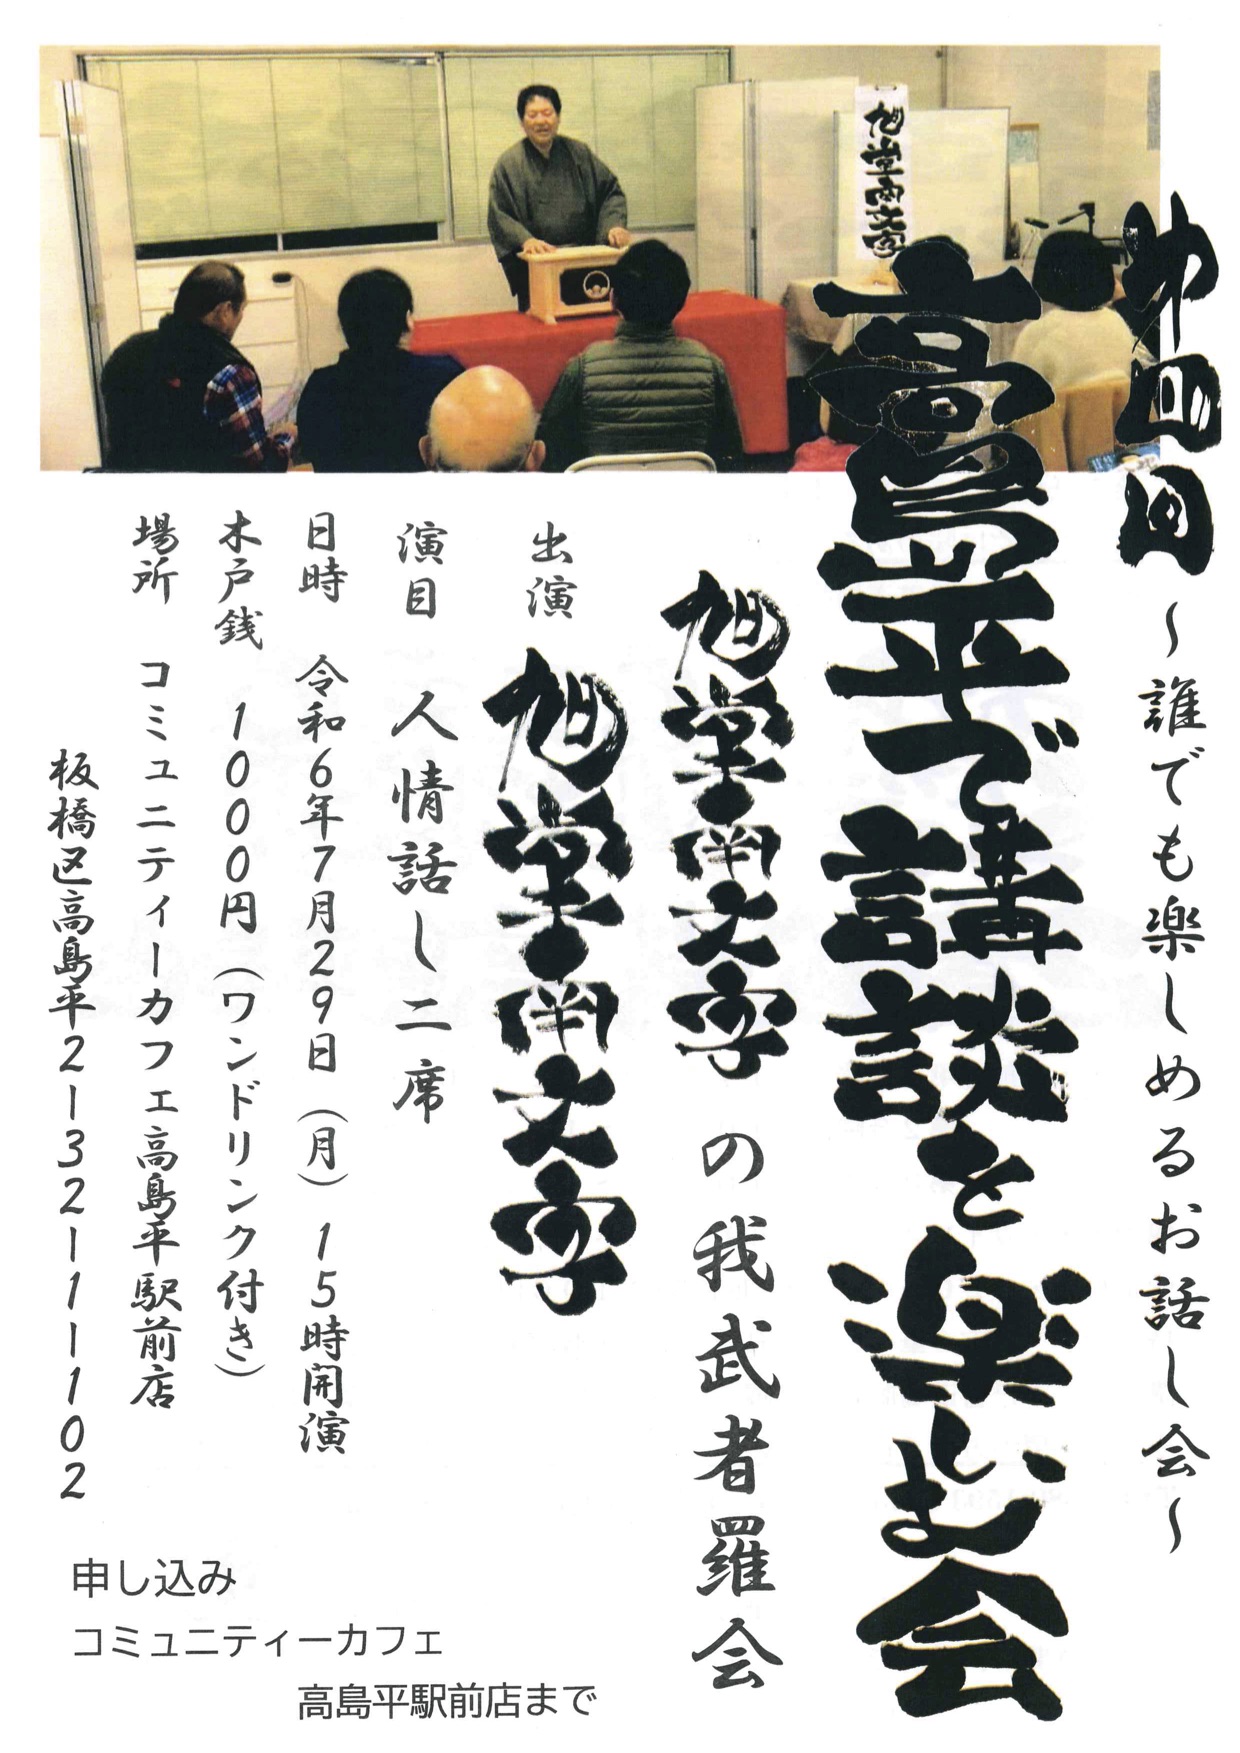 第四回
～誰でも楽しめるお話し会～
高島平で講談を楽しむ会
旭堂南文字の我武者羅会
出演 旭堂南文字
演目 人情話し二席
日時 令和6年7月29日（月）15時開演
木戸銭 1000円（ワンドリンク付き）
場所 コミュニティーカフェ高島平駅前店
板橋区高島平2-32-1-102
旭堂南文字
申し込み
コミュニティーカフェ
高島平駅前店まで